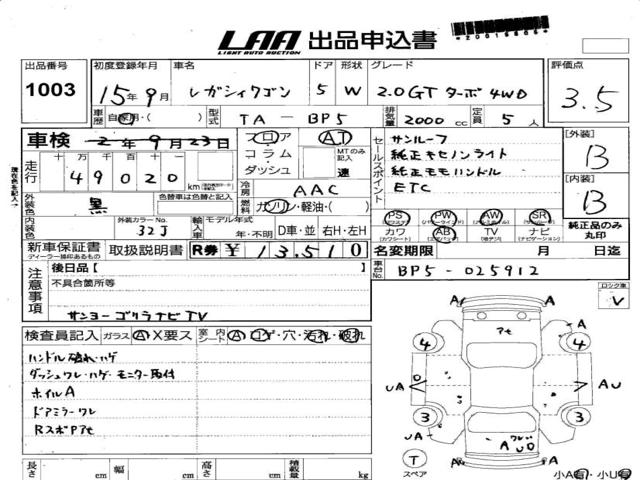 LAA 出品申込書
LIGHT AUTO AUCTION
出品番号 初度登録年月 車名 ドア 形状 グレード 評価点
1003 15年9月 レガシィワゴン 5 W 2.0GT ターボ 4WD 3.5
車歴 自家用・( ) 型式 TA - BP5 排気量 2000 cc 定員 5 人
車検 2年9月23日 フロア AT サンルーフ [外装]
走行 十 万 千 百 十 コラム MTのみ記入 セールスポイント 純正キセノンライト B
49020 km ダッシュ 速 純正モモハンドル [内装]
外装色 黒 色替車は色替と記入 冷房 AAC ETC B
燃料 ガソリン・軽油・( ) PS PW AW SR
内装色 外装カラーNo. 32J 輸入車 モデル年式 年・不明 D車・並 右H・左H カワ AB TV ナビ 純正品のみ丸印
新車保証書 取扱説明書 R券 ¥13,510 名変期限 月 日迄
ディーラー捺印あるもの
注意事項 後日品[ 車台No. BP5-025912
不具合箇所等 ロック車
V
サンヨーゴリラナビTV
検査員記入 ガラス A・X要ス 室内 シート A・コゲ・穴・汚れ・破れ
ハンドル破れ・ハゲ
ダッシュワレ・ハゲ・モニター取付
ホイルA
ドアミラーワレ
RスポPアセ
A A
アセ A
4 4
UA AU
3 3
UA A
ワレ
A U
T
スペア 小A有・小U有
長さ cm 幅 cm 高さ cm 積載量 kg
現在色を記入→